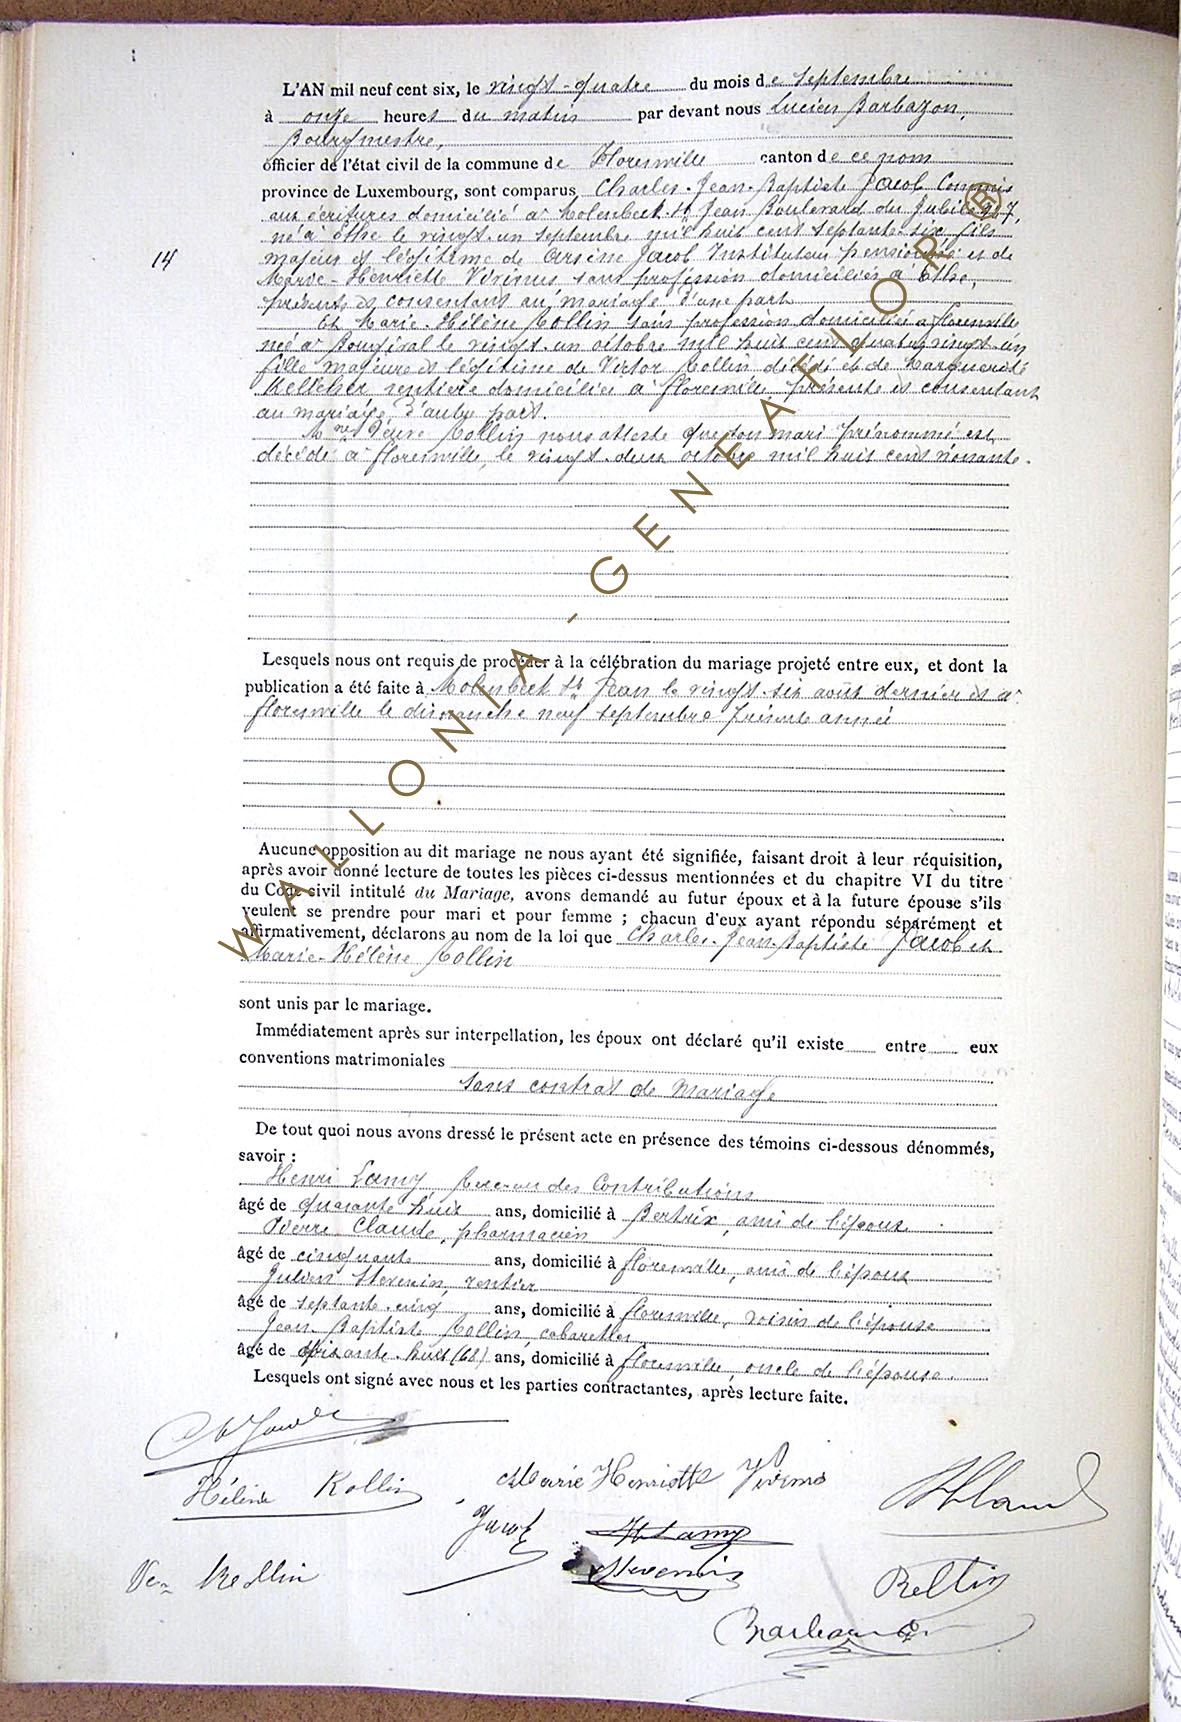 L'AN mil neuf cent six, le vingt-quatre du mois de Septembre
à onze heures du matin par devant nous Lucien Barbazon,
Bourgmestre,
officier de l'état civil de la commune de Florenville canton de ce nom
province de Luxembourg, sont comparus Charles-Jean-Baptiste Jacob Commis
aux écritures domicilié à Molenbeek-St Jean Boulevard du Jubilé 97,
né à Ethe le vingt-un septembre mil huit cent septante-six fils
14
majeur et légitime de Arsène Jacob Instituteur pensionné et de
Marie-Henriette sans profession domiciliés à Ethe,
présents et consentant au mariage d'une part
Et Marie-Hélène Collin sans profession domiciliée à florenville
née à Bougival le vingt-un octobre mil huit cent quatre vingt-un
fille majeure et légitime de Victor Collin décédé et de Marguerite
rentière domiciliée à florenville présente et consentant
au mariage d'autre part.
Mme Veuve Collin nous atteste que son mari prénommé est
décédé à florenville, le vingt-deux octobre mil huit cent nonante.
Lesquels nous ont requis de procéder à la célébration du mariage projeté entre eux, et dont la
publication a été faite à Molenbeek St Jean le vingt-six août dernier et à
florenville le dimanche neuf septembre présente année
Aucune opposition au dit mariage ne nous ayant été signifiée, faisant droit à leur réquisition,
après avoir donné lecture de toutes les pièces ci-dessus mentionnées et du chapitre VI du titre
du Code civil intitulé du Mariage, avons demandé au futur époux et à la future épouse s'ils
veulent se prendre pour mari et pour femme ; chacun d'eux ayant répondu séparément et
affirmativement, déclarons au nom de la loi que Charles-Jean-Baptiste Jacob et
Marie-Hélène Collin
sont unis par le mariage.
Immédiatement après sur interpellation, les époux ont déclaré qu'il existe entre eux
conventions matrimoniales
sans contrat de mariage
De tout quoi nous avons dressé le présent acte en présence des témoins ci-dessous dénommés,
savoir :
Henri Lamy Receveur des Contributions
âgé de quarante huit ans, domicilié à Bertrix, ami de l'épouse
Pierre Claude, pharmacien
âgé de cinquante ans, domicilié à florenville, ami de l'époux
Julien Stevenin, rentier
âgé de septante-cinq ans, domicilié à florenville, voisin de l'épouse
Jean-Baptiste Collin, cabaretier
âgé de soixante-huit (68) ans, domicilié à florenville, oncle de l'épouse.
Lesquels ont signé avec nous et les parties contractantes, après lecture faite.
Hélène Kollin
Marie Henriette
Jacob
H Lamy
Stevenin
Kollin
WALLONIA-GENEAFLOR ®